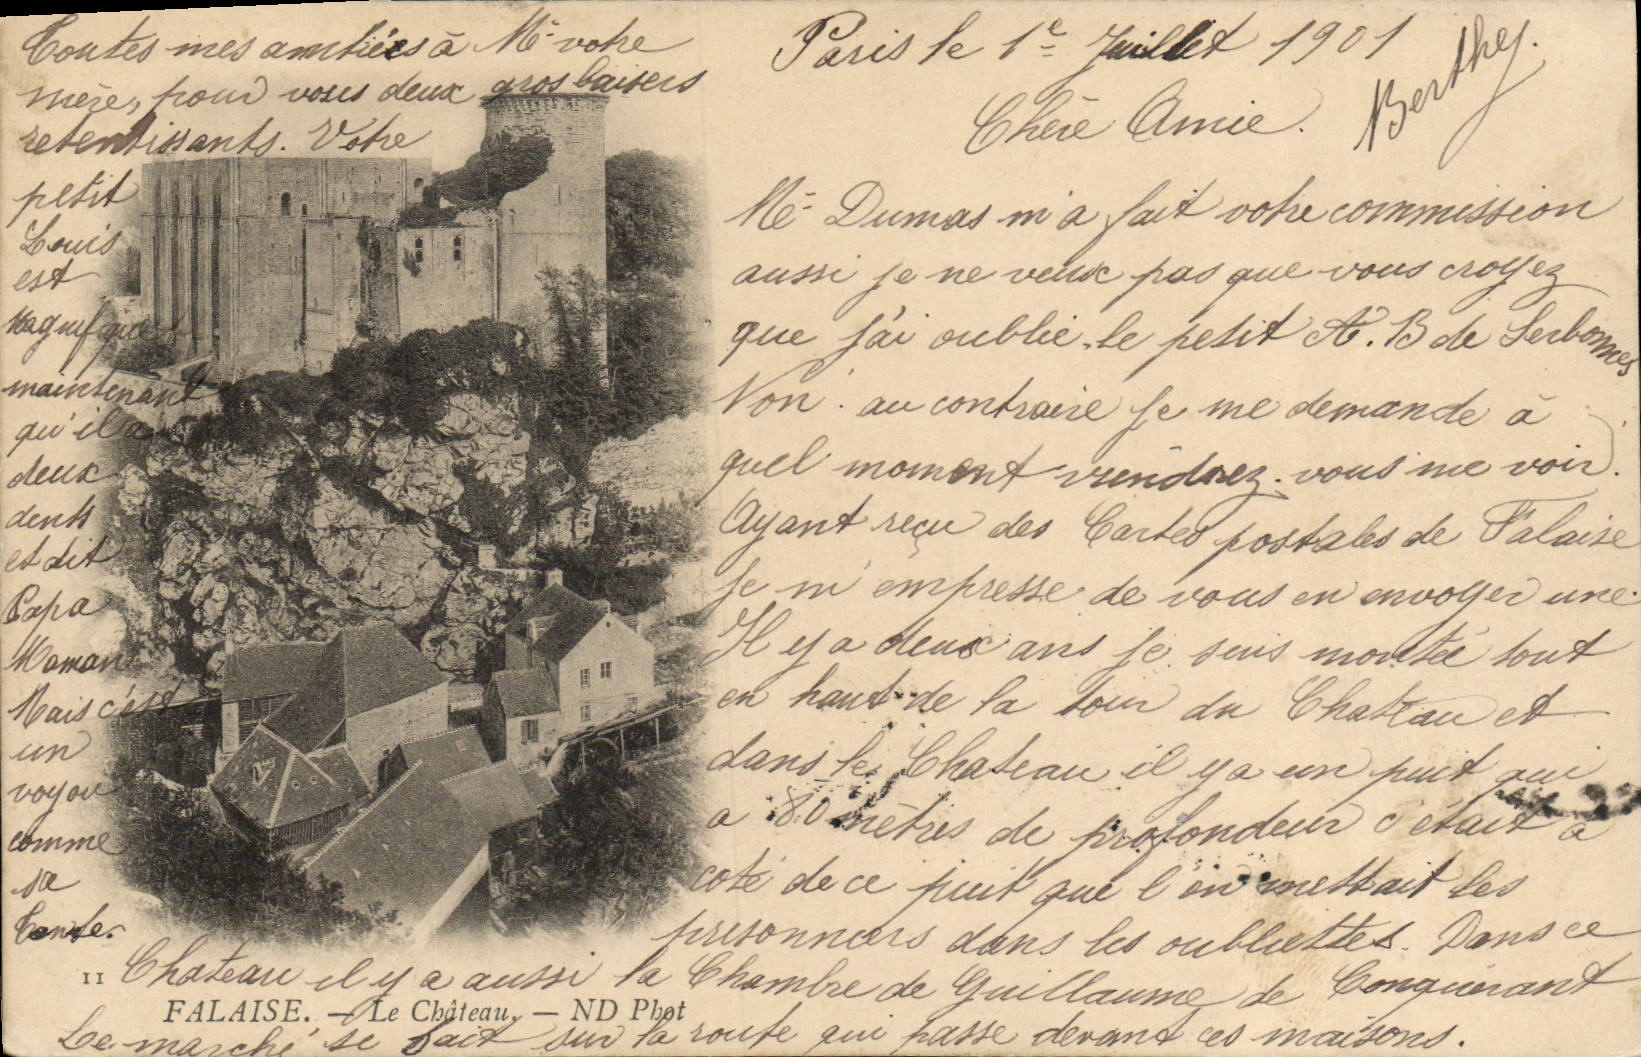 Paris le 1e Juillet 1901
Chère Amie.
Me Dumas m'a fait votre commission
aussi je ne veux pas que vous croyez
que j'ai oublié le petit A. B de Serbonnes
Non. au contraire je me demande à
quel moment viendrez-vous me voir.
Ayant reçu des Cartes postales de Falaise
je m'empresse de vous en envoyer une
Il y a deux ans je suis montée tout
en haut de la tour du Chateau et
dans le Chateau il y a un puit qui
a 80 mètres de profondeur c'était à
coté de ce puit que l'on mettait les
prisonniers dans les oubliettes. Dans ce
Chateau il y a aussi la Chambre de Guillaume de Conquérant
Le marché se fait sur la route qui passe devant ces maisons.
Toutes mes amitiées à Me votre
mère, pour vous deux gros baisers
retentissants. Votre
petit
Louis
est
magnifique
maintenant
qu'il a
deux
dents
et dit
Papa
Maman
Mais c'est
un
voyou
comme
sa
tante.
Berthe.
11
FALAISE. — Le Château. — ND Phot